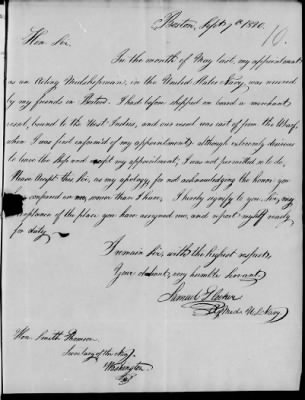 Boston, Sept 7th 1820.
10.
Hon. Sir.
In the month of May last, my appointment
as an Acting Midshipman, in the United States Navy was received
by my friends in Boston. I had before shipped on board a merchant
vessel, bound to the West Indies, and our vessel was cast off from the Wharf,
when I was first informed of my appointment; although extremely desirous
to leave the ship and accept my appointment, I was not permitted so to do.
Please Accept this Sir, as my apology, for not acknowledging the honor you
have conferred on me, sooner than I have, I hereby signify to you Sir, my
acceptance of the place you have assigned me, and report myself ready
for duty.
I remain Sir, with the highest respect,
Your obdnt, very humble Servant
Samuel
Mid. U.S. Navy
Hon. Smith Thomson
Secretary of the Navy.
Washington